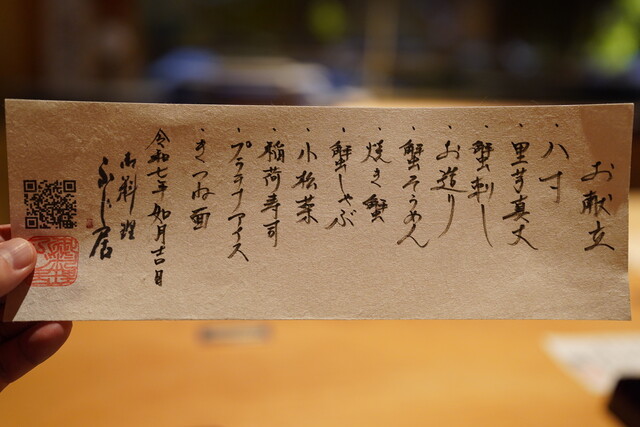 お献立
・八寸
・里芋真丈
・蟹刺し
・お造り
・蟹そうめん
・焼き蟹
・蟹しゃぶ
・小松菜
・稲荷寿司
・プラチナアイス
・きつね面
令和七年如月吉日
御料理
ふじ居